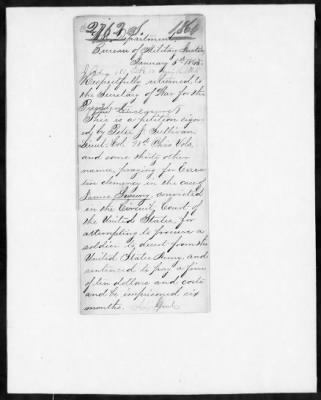 2762 S. 1866
Department
Bureau of Military Justice
January 5th
Respectfully returned to
the Secretary of War for the
President
This is a petition sign-
ed by Peter J. Sullivan
Lieut. Col. Ohio Vols.
and some thirty other
names, praying for Execu-
tive clemency in the case of
James convicted
in the Circuit Court of
the United States, for
attempting to procure a
soldier to desert from the
United States Army, and
sentenced to pay a fine
of ten dollars and costs
and be imprisoned six
months.